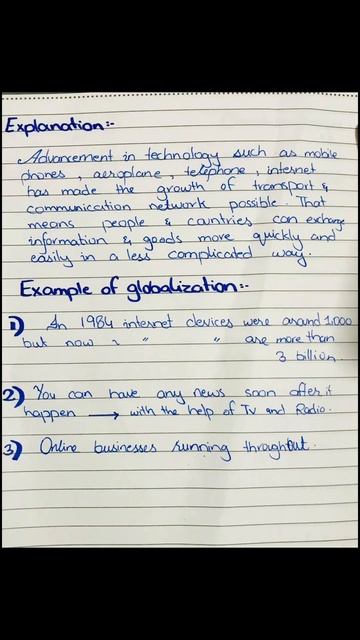 Explanation:-
Advancement in technology such as mobile
phones, aeroplane, telephone, internet
has made the growth of transport &
communication network possible. That
means people & countries can exchange
information & goods more quickly and
easily in a less complicated way.
Example of globalization:-
1) In 1984 internet devices were around 1,000
but now " " are more than
3 billion.
2) You can have any news soon after it
happen → with the help of Tv and Radio.
3) Online businesses running throughout.